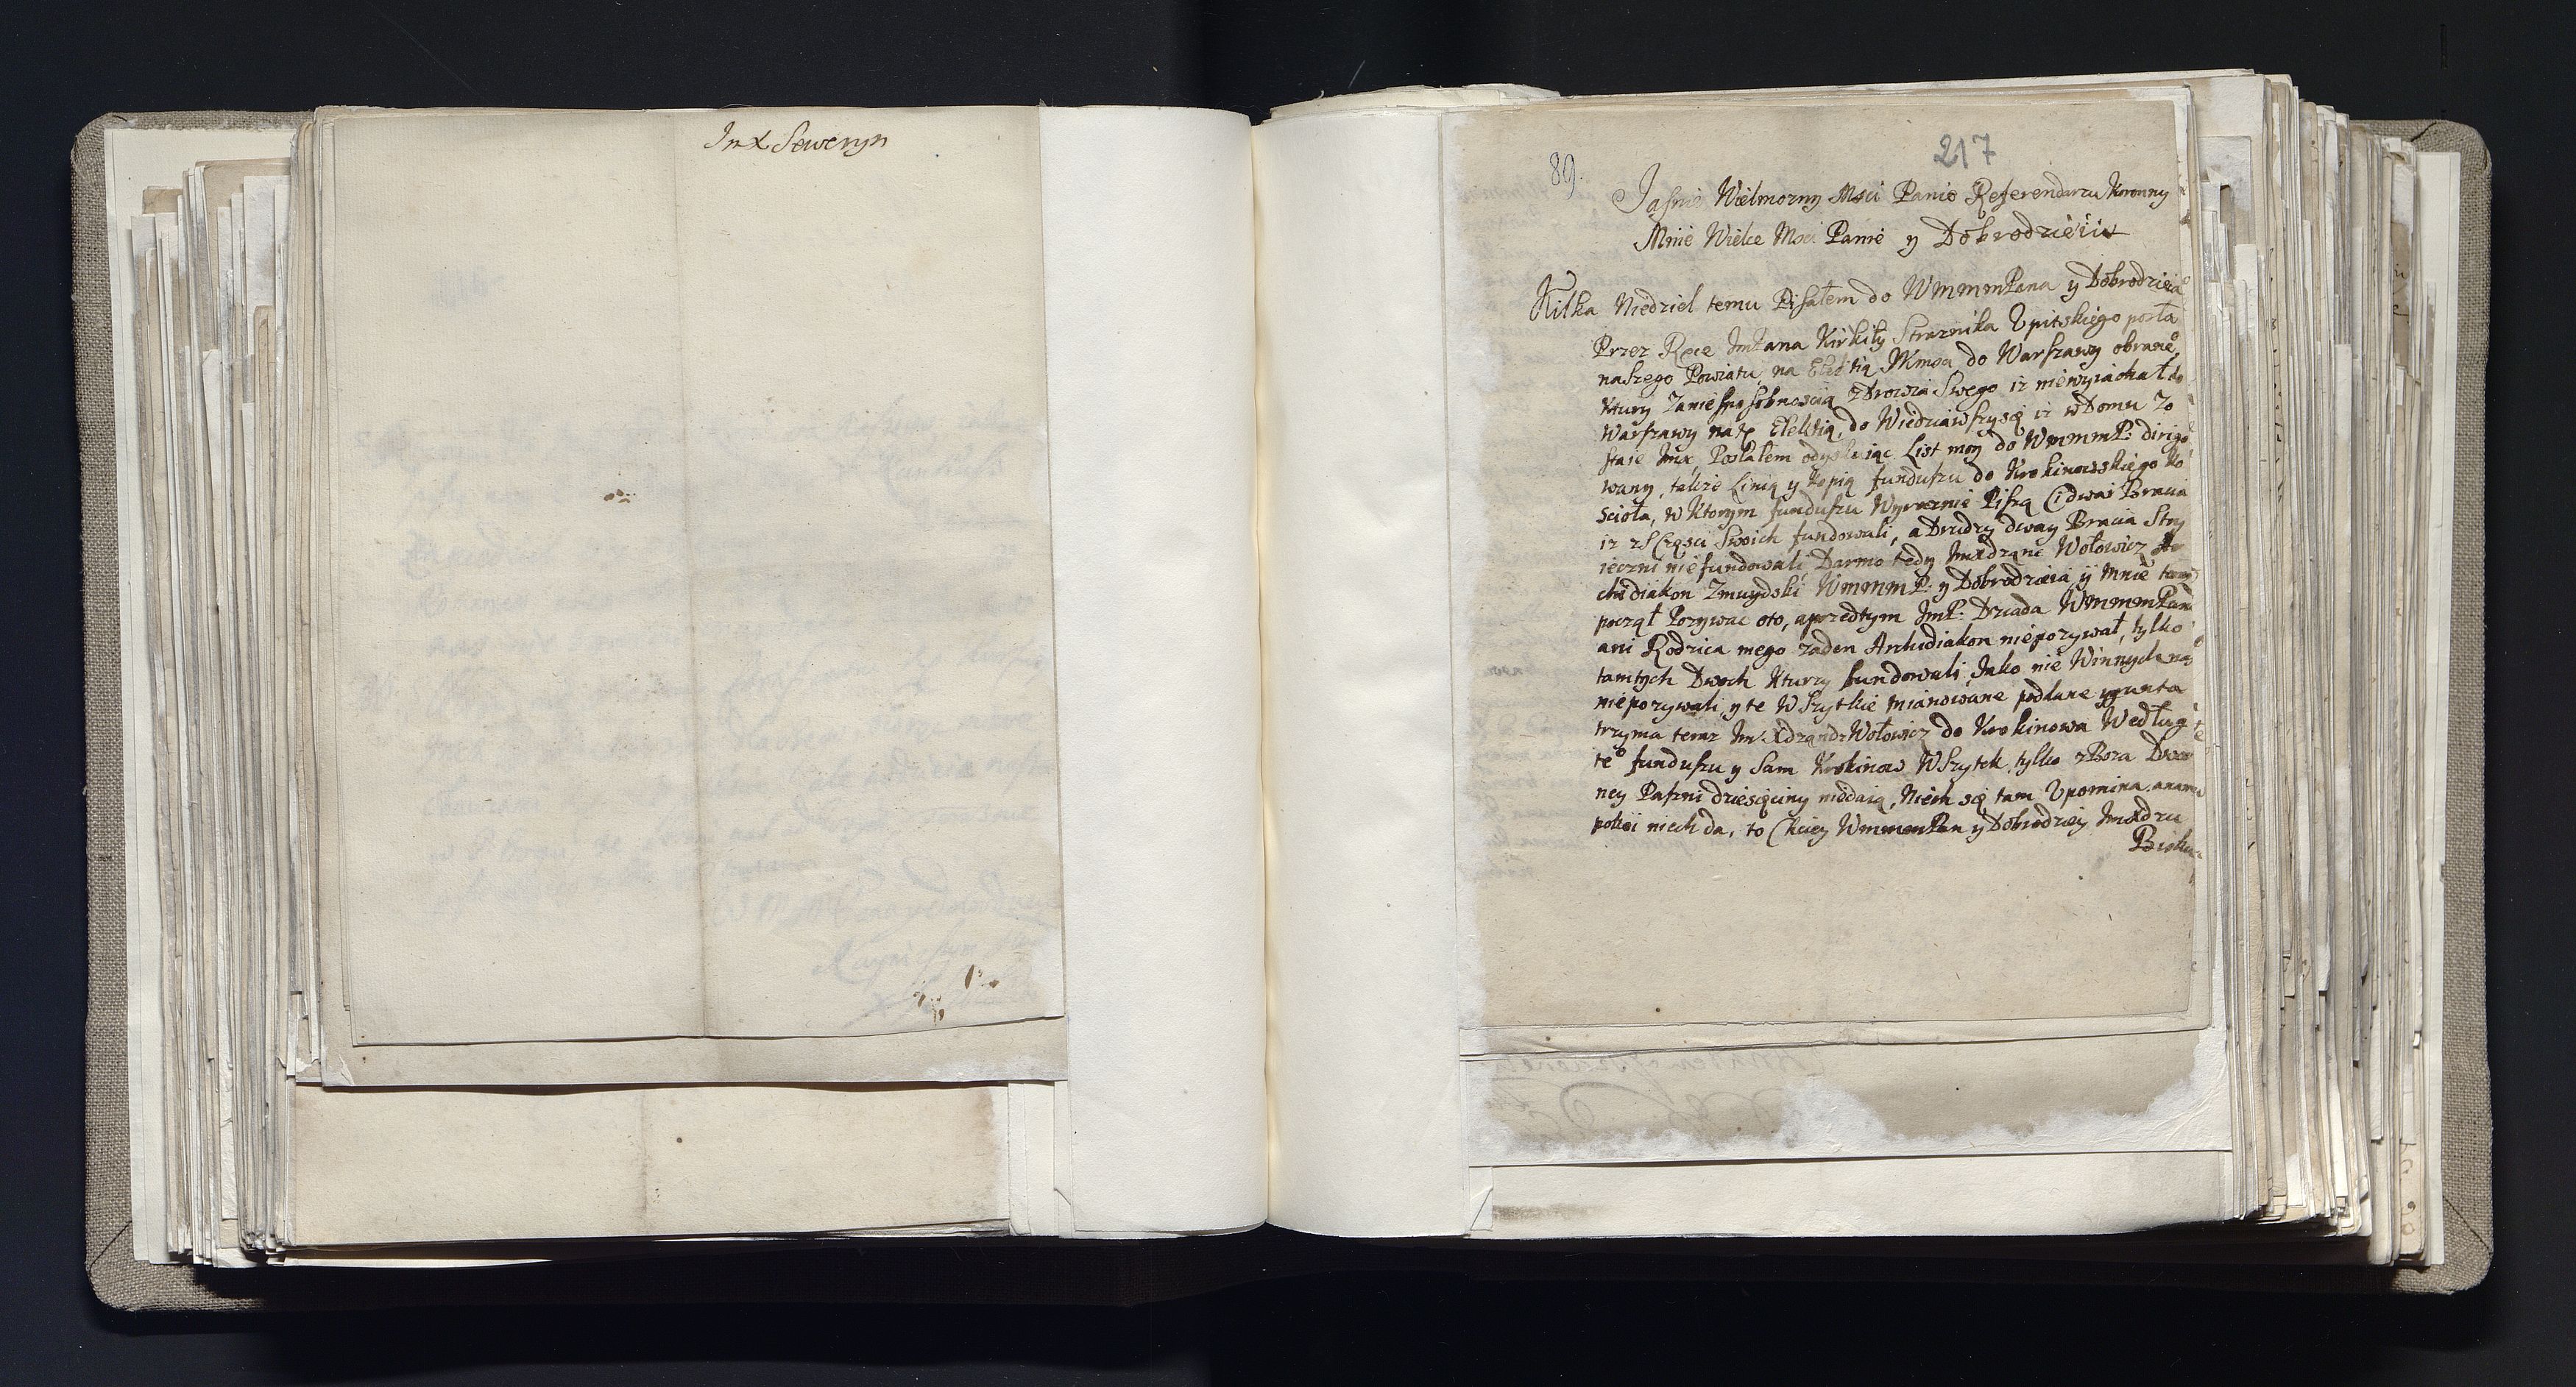 Jmx Seweryn
217
89.
Jasnie Wielmozny Msci Panie Referendarzu Koronny
Mnie Wielce Msci Panie y Dobrodzieiu
Kilka Niedziel temu Pisałem do WmmmPana y Dobrodzieia
Przez Ręce JmPana Kirkiły Straznika Upitskiego posła
naszego Powiatu na Elektią do Warszawy obrane°
Ktury Zaniesposobnoscią zdrowia Swego iz niewyiachał do
Warszawy na tę Elektią, do Wiedziawszy się iz w Domu Zo
staie Posłałem odyskuiąc List moy do WmmmP: dirigo
wany, także y kopią funduszu do Krokinowskiego Ko
scioła, w Ktorym funduszu Wyraznie Piszą Ci dwai Bracia
iz z Częsci Swoich fundowali, a Drudzy dway Bracia Stry
ieczni niefundowali Darmo tedy Wołowicz Ar
chidiakon Zmuydski WmmmP: y Dobrodzieia y Mnie
począł Pozywac oto, aprzedtym JmP: Dziada WmmmPana
ani Rodzica mego zaden Archidiakon niepozywał, tylko
tamtych Dwoch Kturzy fundowali Jako nie Winnych nas
niepozywali, y te Wszytkie mianowane poddane y grunta
trzyma teraz Wołowicz do Krokinowa Według
te° funduszu y Sam Krokinow Wszytek, tylko z Dwor
ney Paszni dziesięciny niedaią, Niech się tam Upomina, anam
pokoi niech da, to Chciey WmmmPan y Dobrodziey
Bisku